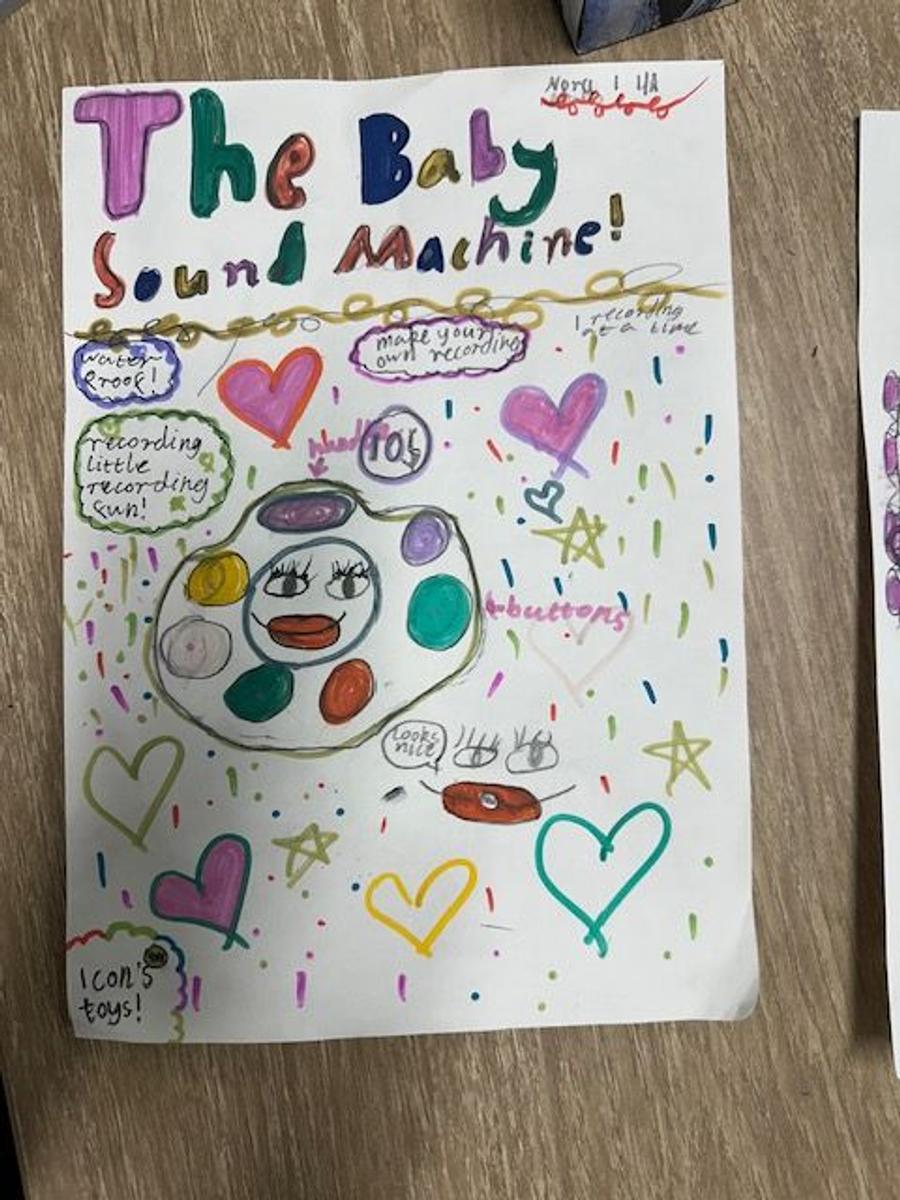 The Baby
Sound Machine!
1 recording
at a time
make your
own recording
water-
proof!
recording
little
recording
fun!
buttons
looks
nice
Icon's
toys!